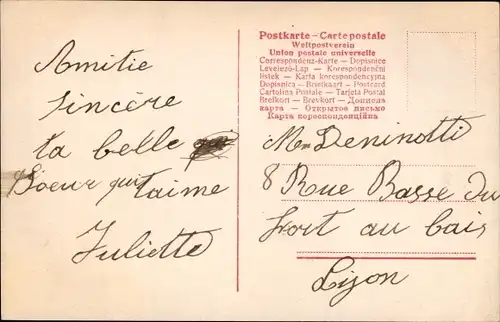 Amitie
sincère
ta belle
Soeur qui t'aime
Juliette
Postkarte - Carte postale
Weltpostverein
Union postale universelle
Correspondenz-Karte - Dopisnice
Levelező-Lap - Korespondenčni
listek - Karta korespondencyjna
Dopisnica - Briefkaart - Postcard
Cartolina Postale - Tarjeta Postal
Brefkort - Brevkort - Дописна
карта - Открытое письмо
Карта кореспонденційна
Mme Deninotti
8 Rue Basse du
Port au bois
Lyon